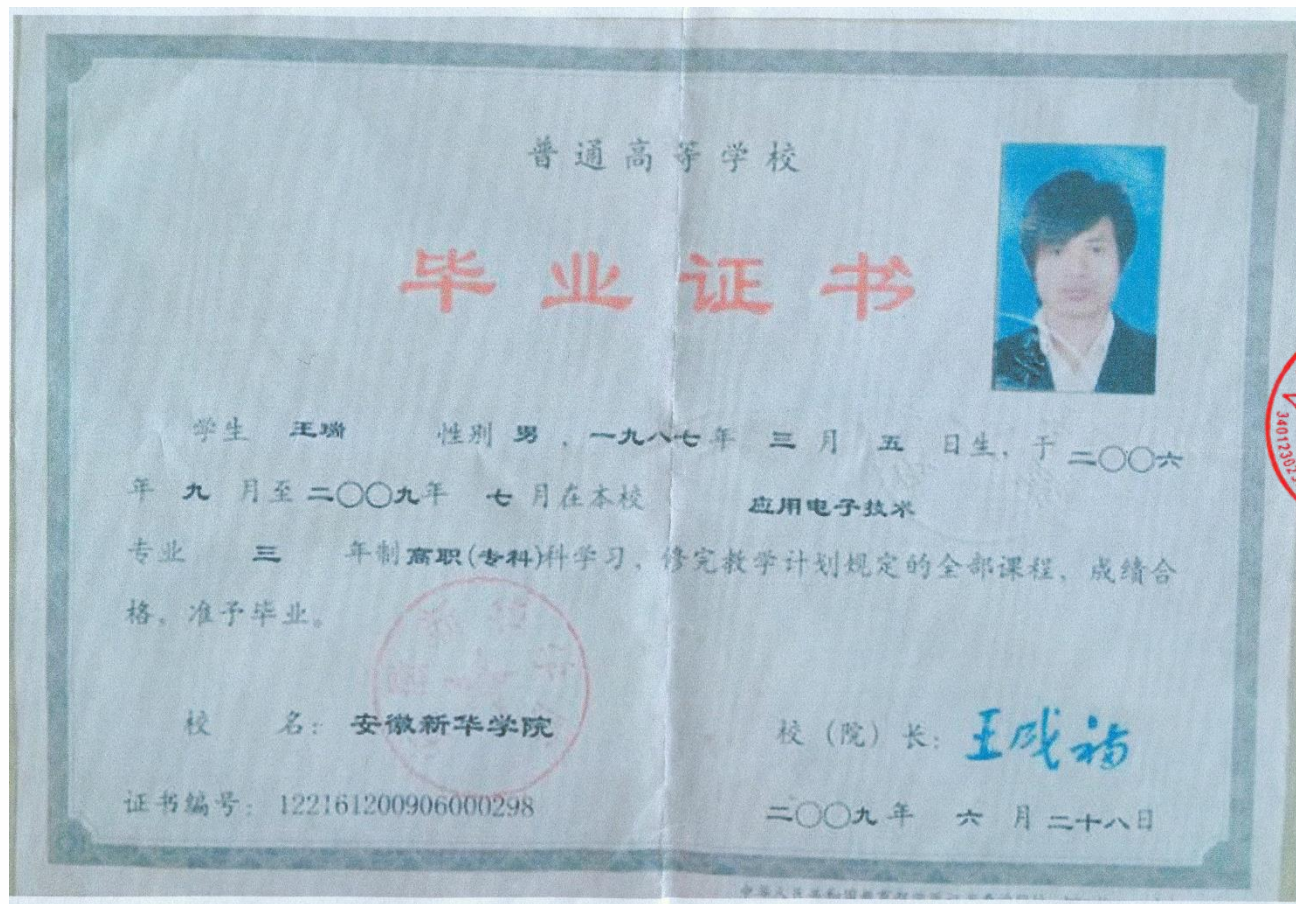 普通高等学校
毕业证书
学生 王瑞 性别 男，一九八七年 三 月 五 日生，于二〇〇六
年 九 月至二〇〇九年 七 月在本校 应用电子技术
专业 三 年制高职(专科)科学习，修完教学计划规定的全部课程，成绩合
格，准予毕业。
校 名：安徽新华学院
校（院）长：王成福
证书编号：122161200906000298
二〇〇九年 六 月二十八日
34012302